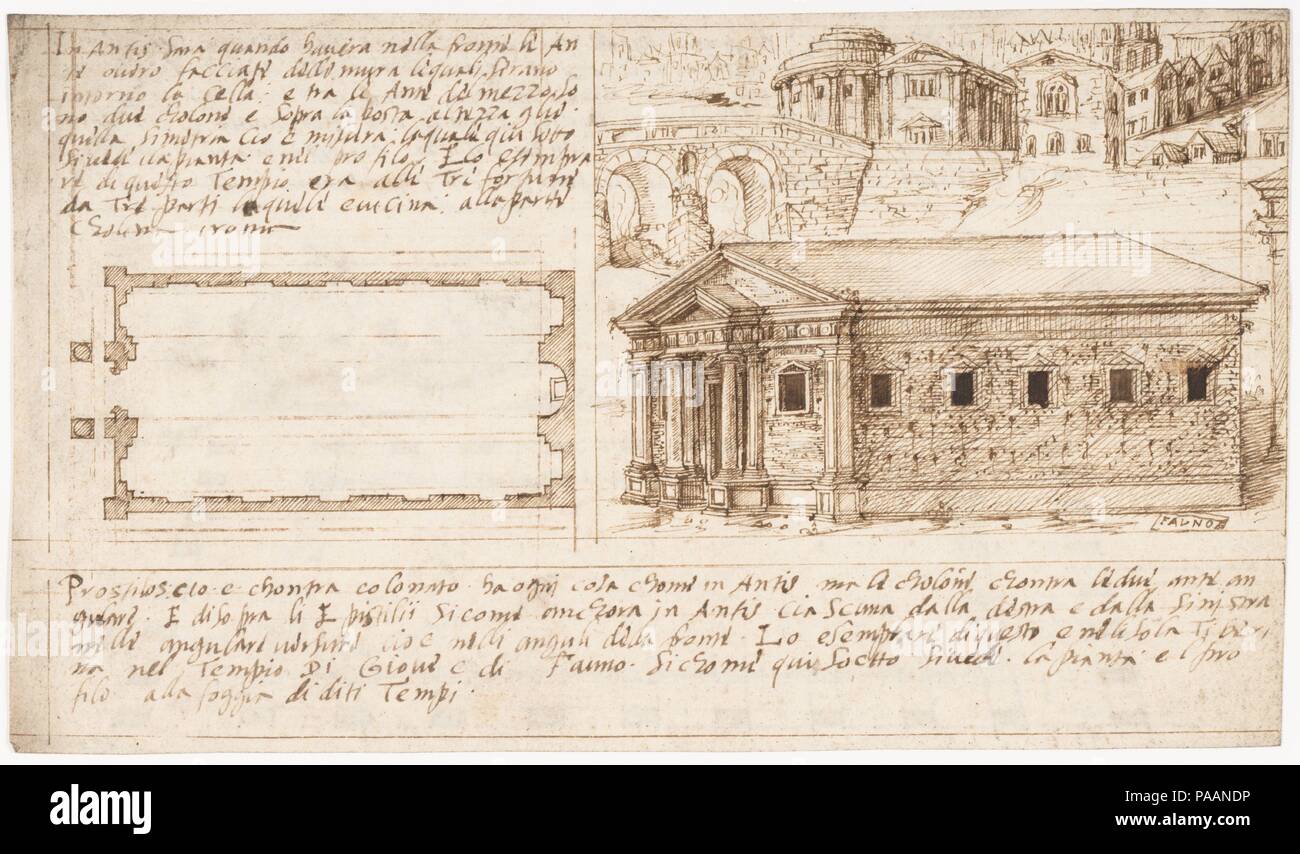 In Antis sara quando havera nella fronte le An
te overo facciate delle mura lequali serano
intorno la cella: e tra le Ante de mezzo so
no due cholone e sopra la posta altezza que
quella simetria cio e misura laquale qui sotto
si vede la pianta e nel profilo. E lo esempla
re di questo Tempio era alle Tre fortune
da Tre parti laquele e vicina alla parte
Cholina
Prostilos cio e chontra colonato ha ogni cosa chome in Antis ma le cholone chontra le due ante an
gulare. E di sopra li Epistilii sicome anchora in Antis ciascuna dalla destra e dalla sinistra
nelle angulare versure cio e nelli anguli della fronte. Lo esemplare di questo e nel isola Tiberi
na nel Tempio Di Giove e di Fauno. Sichome qui soetto si vede la pianta e l pro
filo alla foggia di diti Tempi.
FAUNO
alamy
Image ID: PAANDP
www.alamy.com